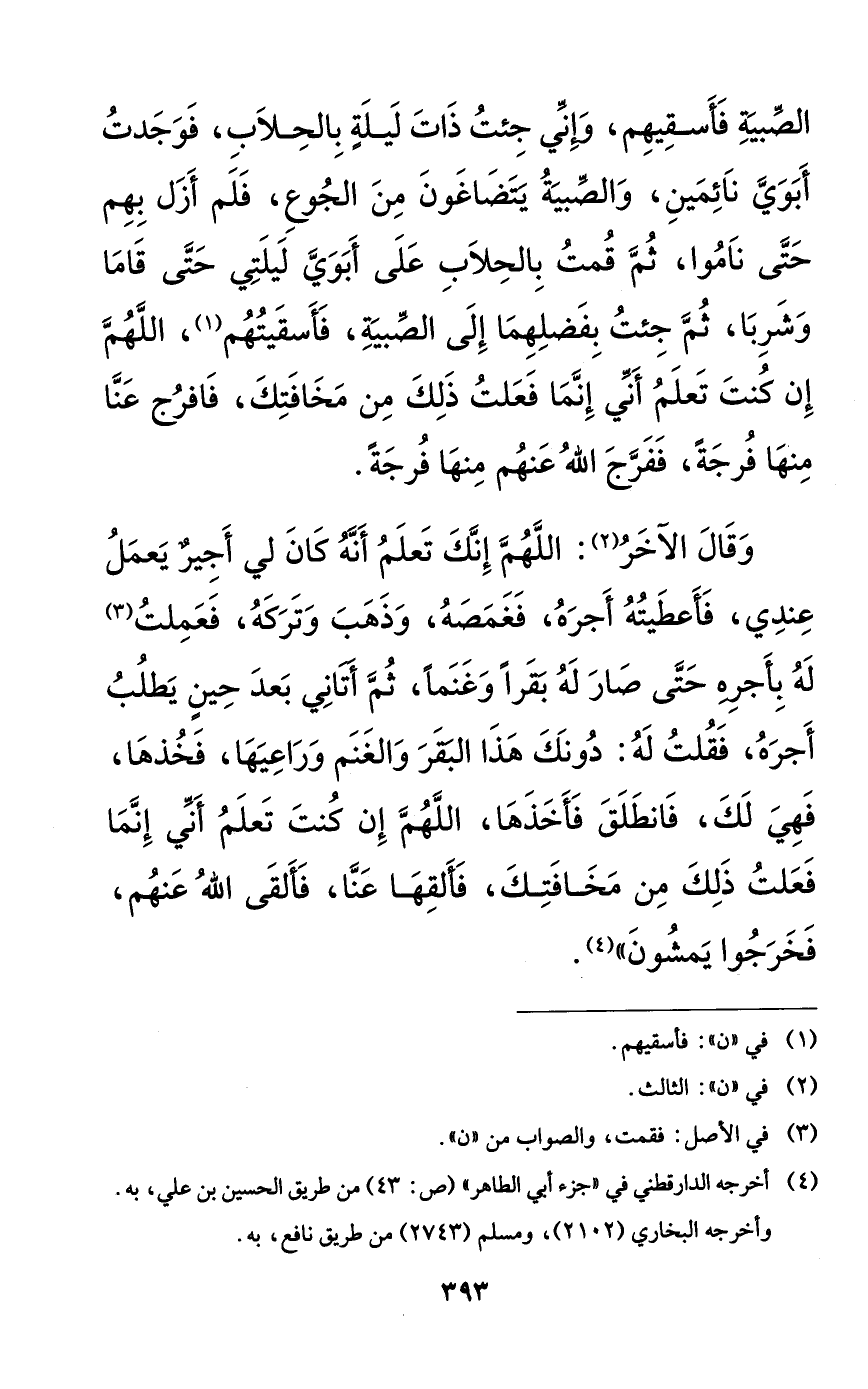 الصِّبيَةِ فَأَسـقِيهِم، وَإِنِّي جِئتُ ذَاتَ لَيـلَةٍ بِالحِـلاَبِ، فَوَجَدتُ
أَبَوَيَّ نَائِمَينِ، وَالصِّبيَةُ يَتَضَاغَونَ مِنَ الجُوعِ، فَلَم أَزَل بِهِم
حَتَّى نَامُوا، ثُمَّ قُمتُ بِالحِلاَبِ عَلَى أَبَوَيَّ لَيلَتِي حَتَّى قَامَا
وَشَرِبَا، ثُمَّ جِئتُ بِفَضلِهِمَا إِلَى الصِّبيَةِ، فَأَسقَيتُهُم(١)، اللَّهُمَّ
إِن كُنتَ تَعلَمُ أَنِّي إِنَّمَا فَعَلتُ ذَلِكَ مِن مَخَافَتِكَ، فَافرُج عَنَّا
مِنهَا فُرجَةً، فَفَرَّجَ اللهُ عَنهُم مِنهَا فُرجَةً.
وَقَالَ الآخَرُ(٢): اللَّهُمَّ إِنَّكَ تَعلَمُ أَنَّهُ كَانَ لي أَجِيرٌ يَعمَلُ
عِندِي، فَأَعطَيتُهُ أَجرَهُ، فَغَمَصَهُ، وَذَهَبَ وَتَرَكَهُ، فَعَمِلتُ(٣)
لَهُ بِأَجرِهِ حَتَّى صَارَ لَهُ بَقَراً وَغَنَماً، ثُمَّ أَتَانِي بَعدَ حِينٍ يَطلُبُ
أَجرَهُ، فَقُلتُ لَهُ: دُونَكَ هَذَا البَقَرَ وَالغَنَم وَرَاعِيَهَا، فَخُذهَا،
فَهِيَ لَكَ، فَانطَلَقَ فَأَخَذَهَا، اللَّهُمَّ إِن كُنتَ تَعلَمُ أَنِّي إِنَّمَا
فَعَلتُ ذَلِكَ مِن مَخَـافَتِـكَ، فَأَلقِهَـا عَنَّا، فَأَلقَى اللهُ عَنهُم،
فَخَرَجُوا يَمشُونَ»(٤).
(١) في «ن»: فأسقيهم.
(٢) في «ن»: الثالث.
(٣) في الأصل: فقمت، والصواب من «ن».
(٤) أخرجه الدارقطني في «جزء أبي الطاهر» (ص: ٤٣) من طريق الحسين بن علي، به.
وأخرجه البخاري (٢١٠٢)، ومسلم (٢٧٤٣) من طريق نافع، به.
٣٩٣